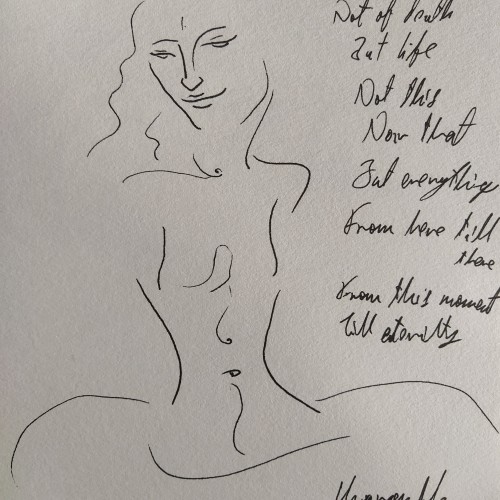 Not of
But life
Not this
Nor that
But everything
From here till
there
From this moment
Till eternity